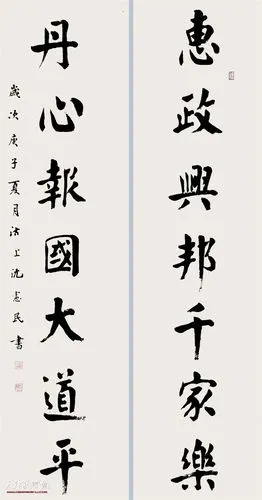 惠政興邦千家樂
丹心報國大道平
歲次庚子夏月沽上沈憲民書